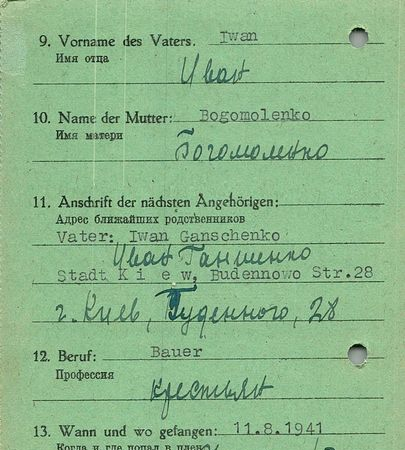 9. Vorname des Vaters. Iwan
Имя отца
Иван
10. Name der Mutter: Bogomolenko
Имя матери
Богомоленко
11. Anschrift der nächsten Angehörigen:
Адрес ближайших родственников
Vater: Iwan Ganschenko
Иван Ганшенко
Stadt K i e w, Budennowo Str.28
г. Киев, Буденного, 28
12. Beruf: Bauer
Профессия
крестьян
13. Wann und wo gefangen: 11.8.1941
Когда и где попал в плен